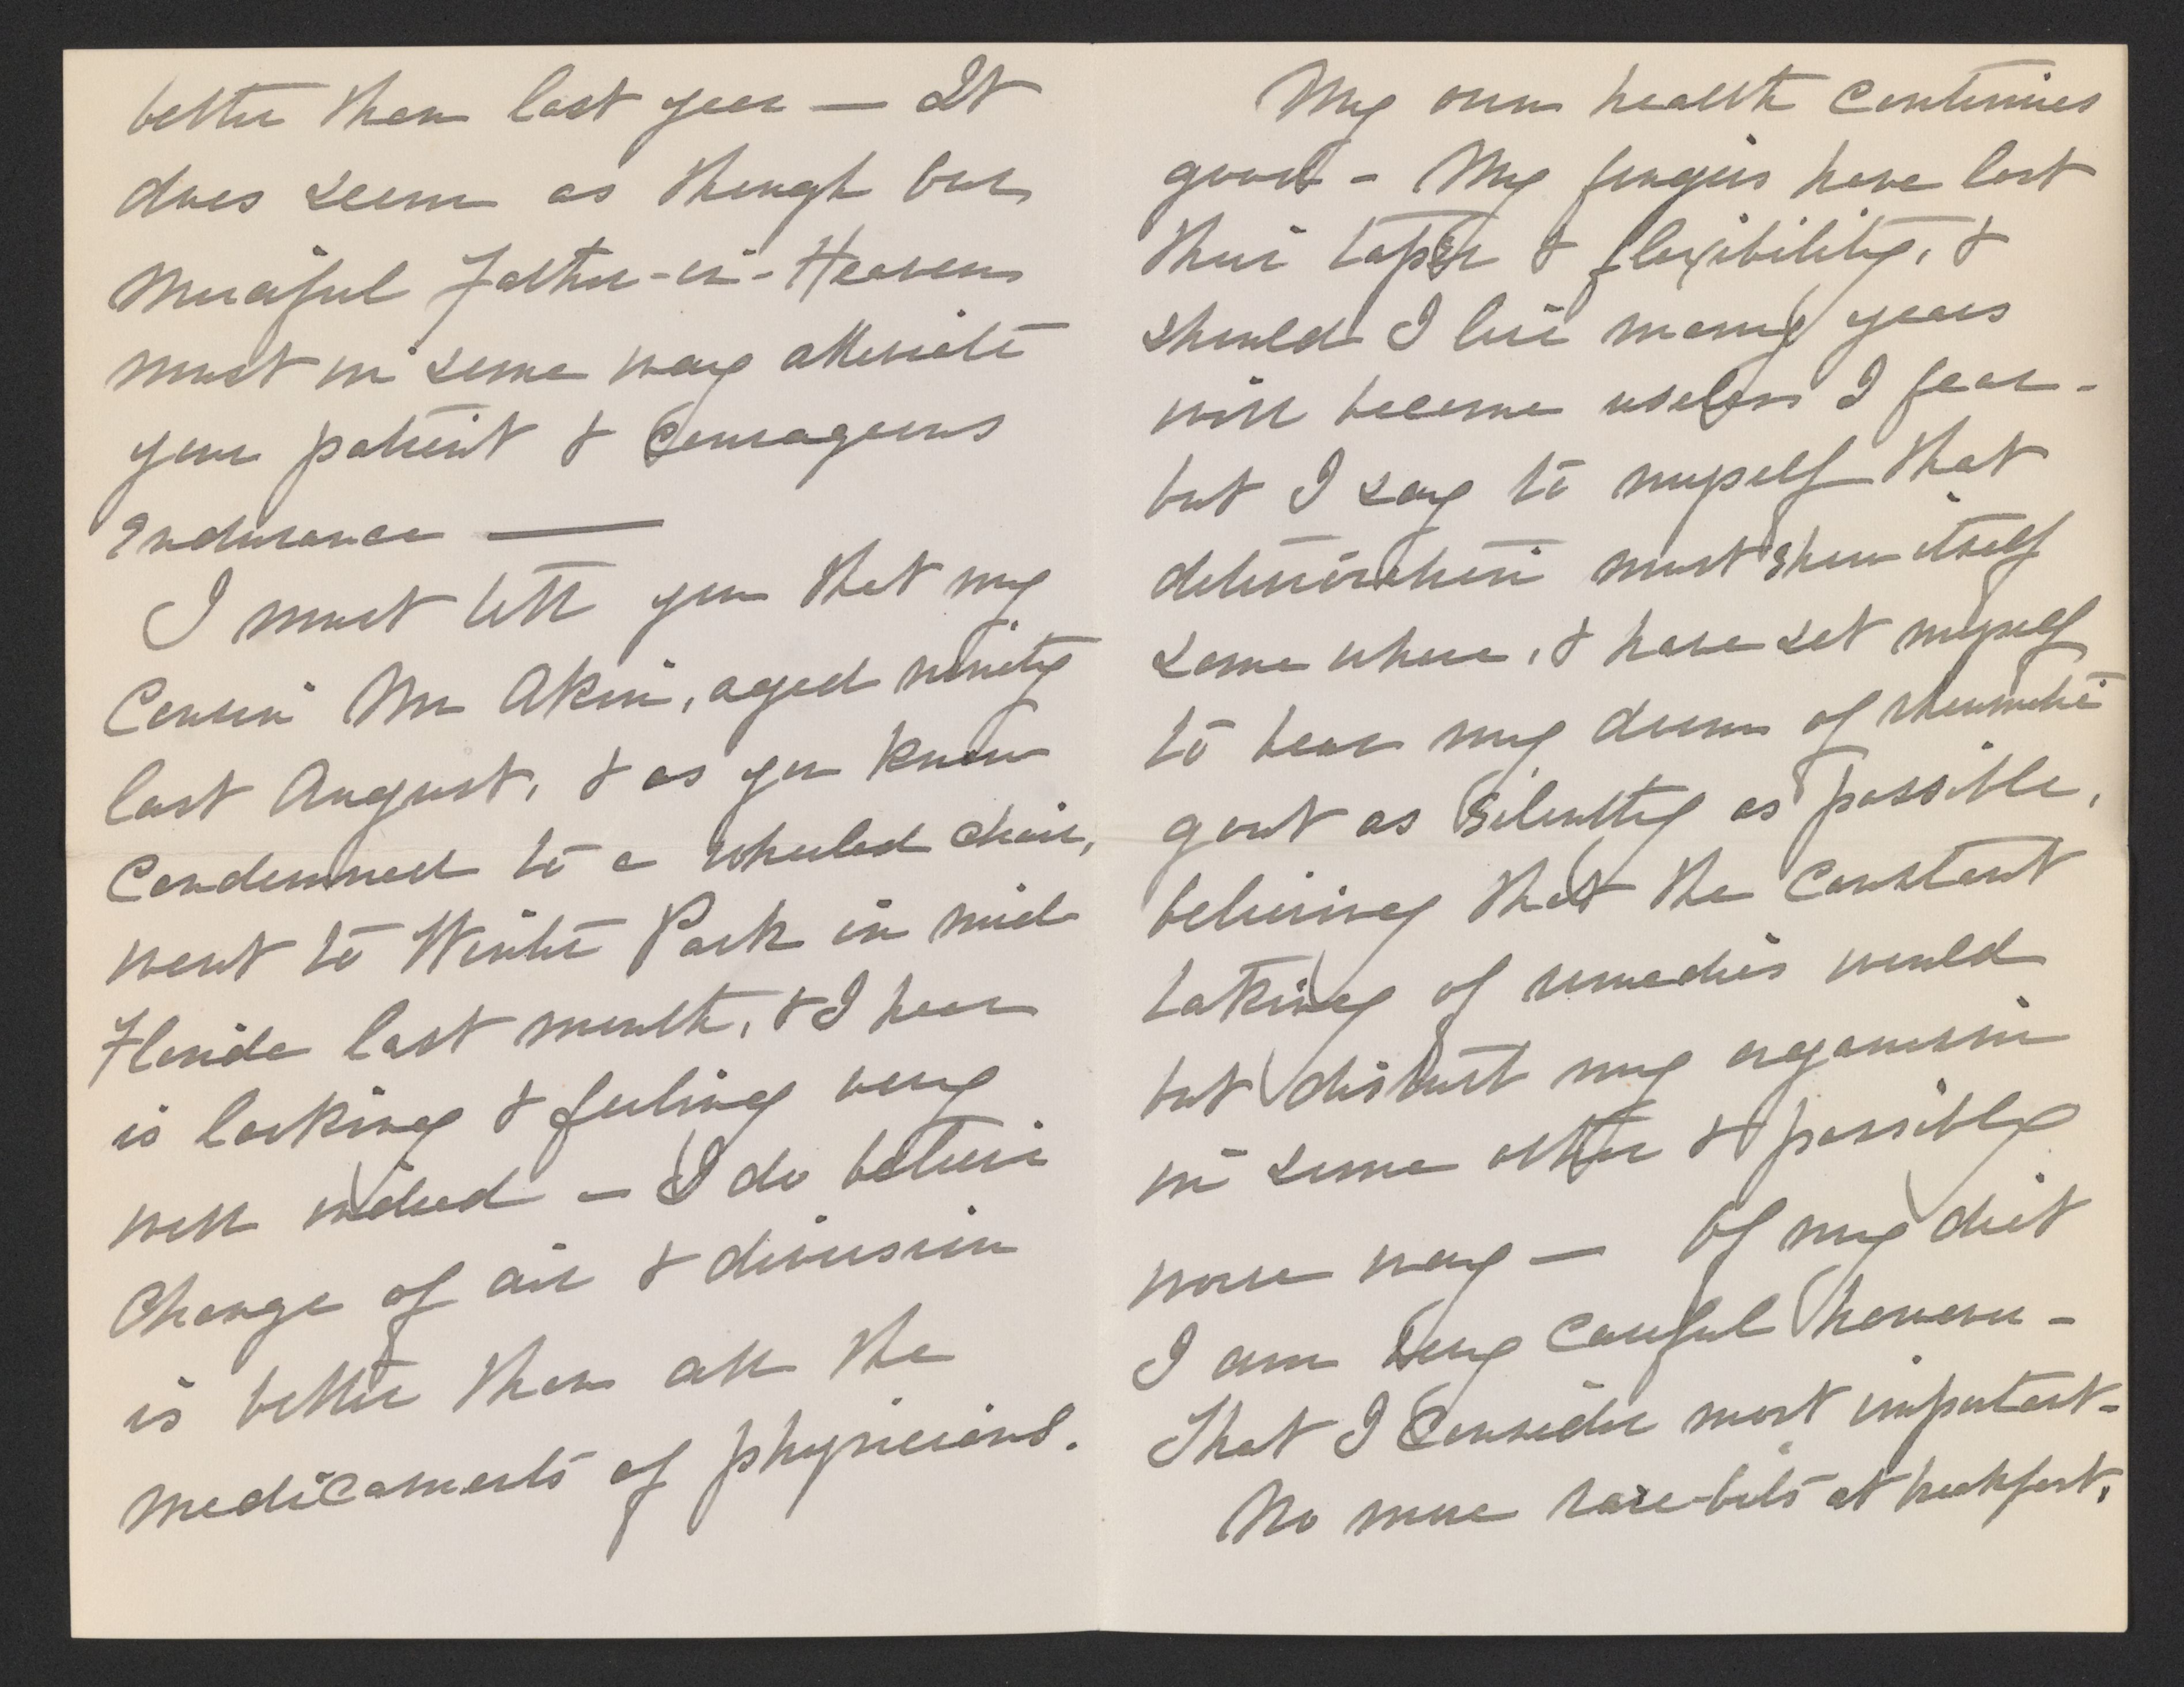 better than last year — It
does seem as though our
Merciful Father-in-Heaven
must in some way alleviate
your patient & courageous
Endurance —
I must tell you that my
Cousin Mr Akin, aged ninety
last August, & as you know
Condemned to a wheeled chair,
went to Winter Park in mid
Florida last month, & I hear
is looking & feeling very
well indeed – I do believe
Change of air & diversion
is better than all the
medicaments of physicians.
My own health continues
good – My fingers have lost
their taper & flexibility, &
should I live many years
will become useless I fear –
but I say to myself that
deterioration must show itself
some where, & have set myself
to bear my doom of rheumatic
gout as silently as possible,
believing that the constant
taking of remedies would
but disturb my organism
in some other & possibly
worse way — Of my diet
I am very careful however –
That I consider most important –
No more rare-bits at breakfast,